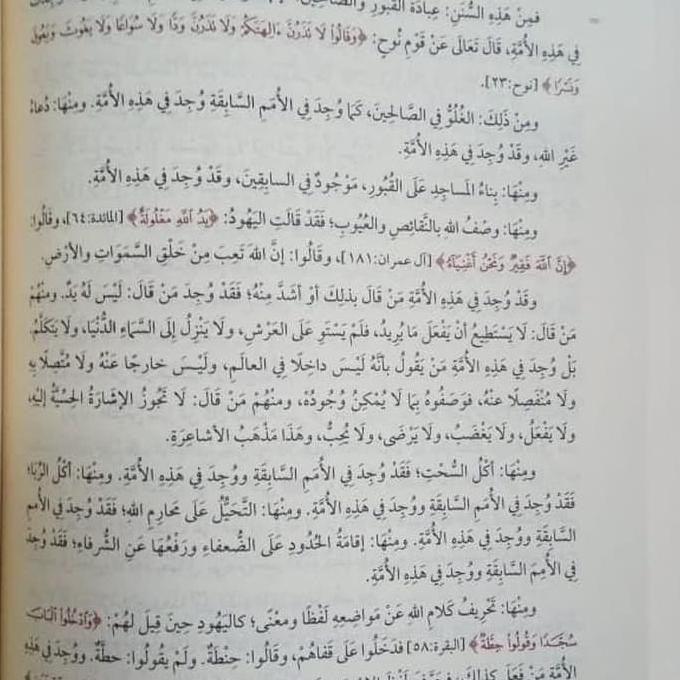 فمِنْ هَذِهِ السُّنَنِ: عِبَادَةُ القُبُورِ والصَّالِحِينَ
فِي هَذِهِ الأُمَّةِ، قَالَ تَعَالَى عَنْ قَوْمِ نُوحٍ: ﴿وَقَالُوا لَا تَذَرُنَّ ءَالِهَتَكُمْ وَلَا تَذَرُنَّ وَدًّا وَلَا سُوَاعًا وَلَا يَغُوثَ وَيَعُوقَ
وَنَسْرًا﴾ [نوح:٢٣].
ومِنْ ذَلِكَ: الغُلُوُّ فِي الصَّالِحِينَ، كَمَا وُجِدَ فِي الأُمَمِ السَّابِقَةِ وُجِدَ فِي هَذِهِ الأُمَّةِ. ومِنْهَا: دُعَاءُ
غَيْرِ اللهِ، وقَدْ وُجِدَ فِي هَذِهِ الأُمَّةِ.
ومِنْهَا: بِنَاءُ المَسَاجِدِ عَلَى القُبُورِ، مَوْجُودٌ فِي السابِقِينَ، وقَدْ وُجِدَ فِي هَذِهِ الأُمَّةِ.
ومِنْهَا: وصْفُ اللهِ بالنَّقائِصِ والعُيُوبِ؛ فقَدْ قَالَتِ اليَهُودُ: ﴿يَدُ اللَّهِ مَغْلُولَةٌ﴾ [المائدة:٦٤]، وقَالُوا:
﴿إِنَّ اللَّهَ فَقِيرٌ وَنَحْنُ أَغْنِيَاءُ﴾ [آل عمران:١٨١]، وقَالُوا: إنَّ اللهَ تَعِبَ مِنْ خَلْقِ السَّمَوَاتِ والأرْضِ.
وقَدْ وُجِدَ فِي هَذِهِ الأُمَّةِ مَنْ قَالَ بذلِكَ أوْ أشَدَّ مِنْهُ؛ فقَدْ وُجِدَ مَنْ قَالَ: لَيْسَ لَهُ يَدٌ. ومِنْهُمْ
مَنْ قَالَ: لَا يَسْتَطِيعُ أنْ يَفْعَلَ مَا يُرِيدُ، فلَمْ يَسْتَوِ عَلَى العَرْشِ، ولَا يَنْزِلُ إلَى السَّمَاءِ الدُّنْيَا، ولَا يَتَكَلَّمُ.
بَلْ وُجِدَ فِي هَذِهِ الأُمَّةِ مَنْ يَقُولُ بأنَّهُ لَيْسَ دَاخِلًا فِي العالَمِ، ولَيْسَ خارِجًا عَنْهُ ولَا مُتَّصِلًا بِهِ
ولَا مُنْفَصِلًا عنْهُ، فوَصَفُوهُ بِمَا لَا يُمْكِنُ وُجُودُهُ، ومِنْهُمْ مَنْ قَالَ: لَا تَجُوزُ الإشَارَةُ الحِسِّيَّةُ إلَيْهِ،
ولَا يَفْعَلُ، ولَا يَغْضَبُ، ولَا يَرْضَى، ولَا يُحِبُّ، وهَذَا مَذْهَبُ الأشاعِرَةِ.
ومِنْهَا: أكْلُ السُّحْتِ؛ فقَدْ وُجِدَ فِي الأُمَمِ السَّابِقَةِ ووُجِدَ فِي هَذِهِ الأُمَّةِ. ومِنْهَا: أكْلُ الرِّبَا؛
فَقَدْ وُجِدَ فِي الأُمَمِ السَّابِقَةِ ووُجِدَ فِي هَذِهِ الأُمَّةِ. ومِنْهَا: التَّحَيُّلُ عَلَى مَحارِمِ اللهِ؛ فَقَدْ وُجِدَ فِي الأُممِ
السَّابِقَةِ ووُجِدَ فِي هَذِهِ الأُمَّةِ. ومِنْهَا: إقامَةُ الحُدُودِ عَلَى الضُّعفاءِ ورَفْعُهَا عَنِ الشُّرفاءِ؛ فقَدْ وُجِدَ
فِي الأُمَمِ السَّابِقَةِ ووُجِدَ فِي هَذِهِ الأُمَّةِ.
ومِنْهَا: تَحْرِيفُ كَلَامِ اللهِ عَنْ مَواضِعِهِ لَفْظًا ومعْنًى؛ كاليَهُودِ حِينَ قِيلَ لهُمْ: ﴿وَادْخُلُوا الْبَابَ
سُجَّدًا وَقُولُوا حِطَّةٌ﴾ [البقرة:٥٨] فدَخَلُوا عَلَى قَفَاهُمْ، وقَالُوا: حِنْطَةٌ. ولَمْ يَقُولُوا: حطَّةٌ. ووُجِدَ فِي هَذِهِ
الأُمَّةِ مَنْ فَعَلَ كذلِكَ